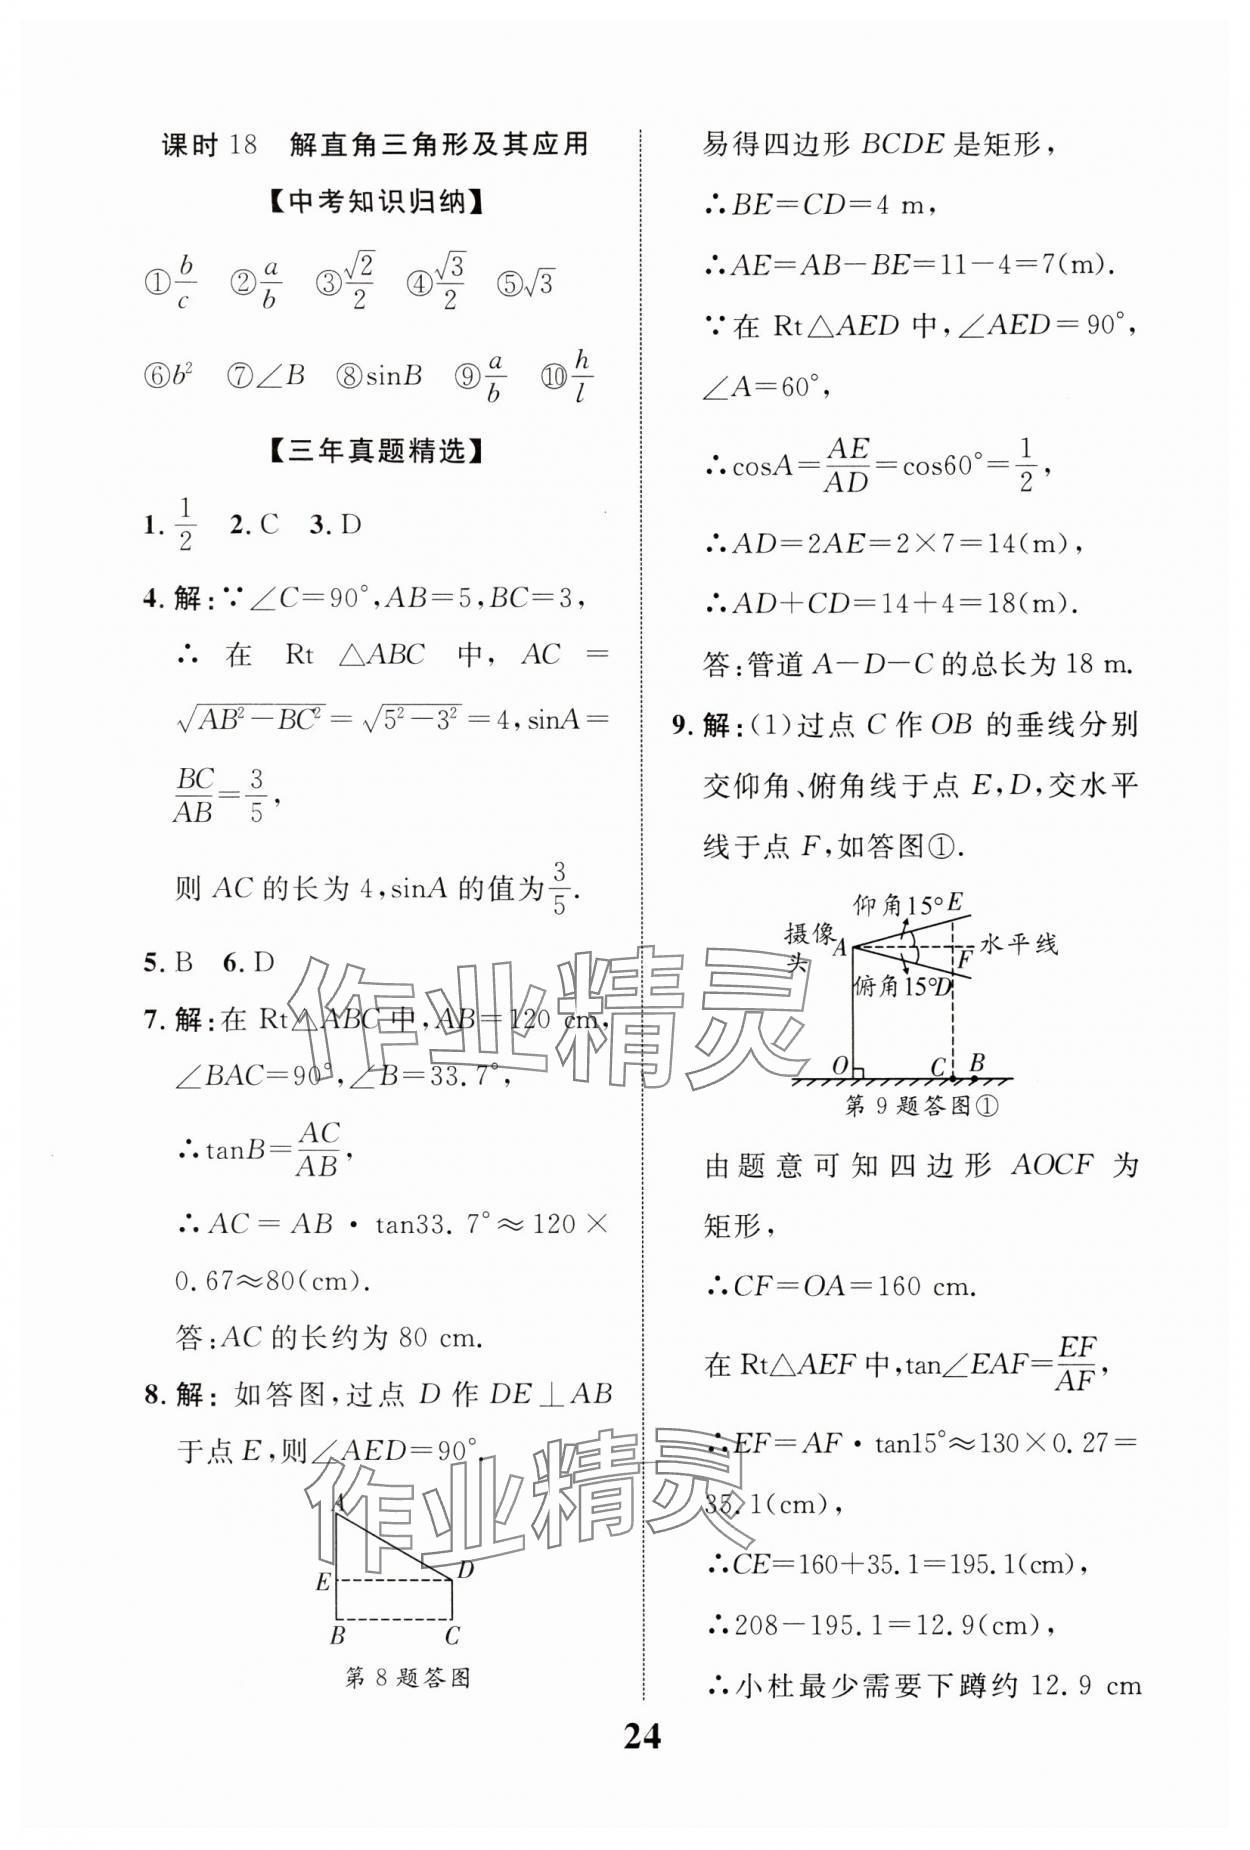 课时 18 解直角三角形及其应用
【中考知识归纳】
①b/c ②a/b ③√2/2 ④√3/2 ⑤√3
⑥b² ⑦∠B ⑧sinB ⑨a/b ⑩h/l
【三年真题精选】
1. 1/2 2. C 3. D
4. 解:∵∠C=90°,AB=5,BC=3,
∴ 在 Rt △ABC 中, AC =
√(AB²-BC²)=√(5²-3²)=4,sinA=
BC/AB=3/5,
则 AC 的长为 4,sinA 的值为3/5.
5. B 6. D
7. 解:在 Rt△ABC 中,AB=120 cm,
∠BAC=90°,∠B=33.7°,
∴tanB=AC/AB,
∴AC=AB·tan33.7°≈120×
0.67≈80(cm).
答:AC 的长约为 80 cm.
8. 解: 如答图,过点 D 作 DE⊥AB
于点 E,则∠AED=90°.
A
E D
B C
第 8 题答图
易得四边形 BCDE 是矩形,
∴BE=CD=4 m,
∴AE=AB-BE=11-4=7(m).
∵在 Rt△AED 中,∠AED=90°,
∠A=60°,
∴cosA=AE/AD=cos60°=1/2,
∴AD=2AE=2×7=14(m),
∴AD+CD=14+4=18(m).
答:管道 A-D-C 的总长为 18 m.
9. 解:(1)过点 C 作 OB 的垂线分别
交仰角、俯角线于点 E,D,交水平
线于点 F,如答图①.
仰角15° E
摄像头 A 水平线
F
俯角15° D
O C B
第 9 题答图①
由题意可知四边形 AOCF 为
矩形,
∴CF=OA=160 cm.
在 Rt△AEF 中,tan∠EAF=EF/AF,
∴EF=AF·tan15°≈130×0.27=
35.1(cm),
∴CE=160+35.1=195.1(cm),
∴208-195.1=12.9(cm),
∴小杜最少需要下蹲约 12.9 cm
24
作业精灵
作业精灵